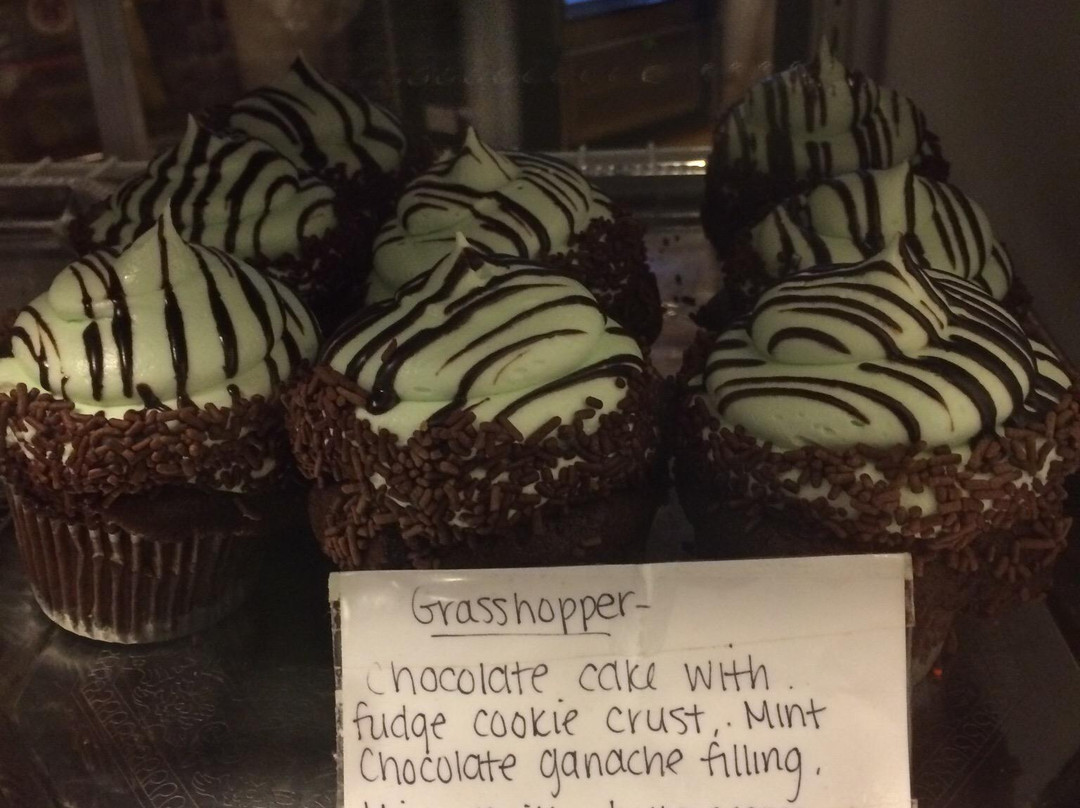 Grasshopper-
Chocolate cake with
fudge cookie crust. Mint
Chocolate ganache filling.